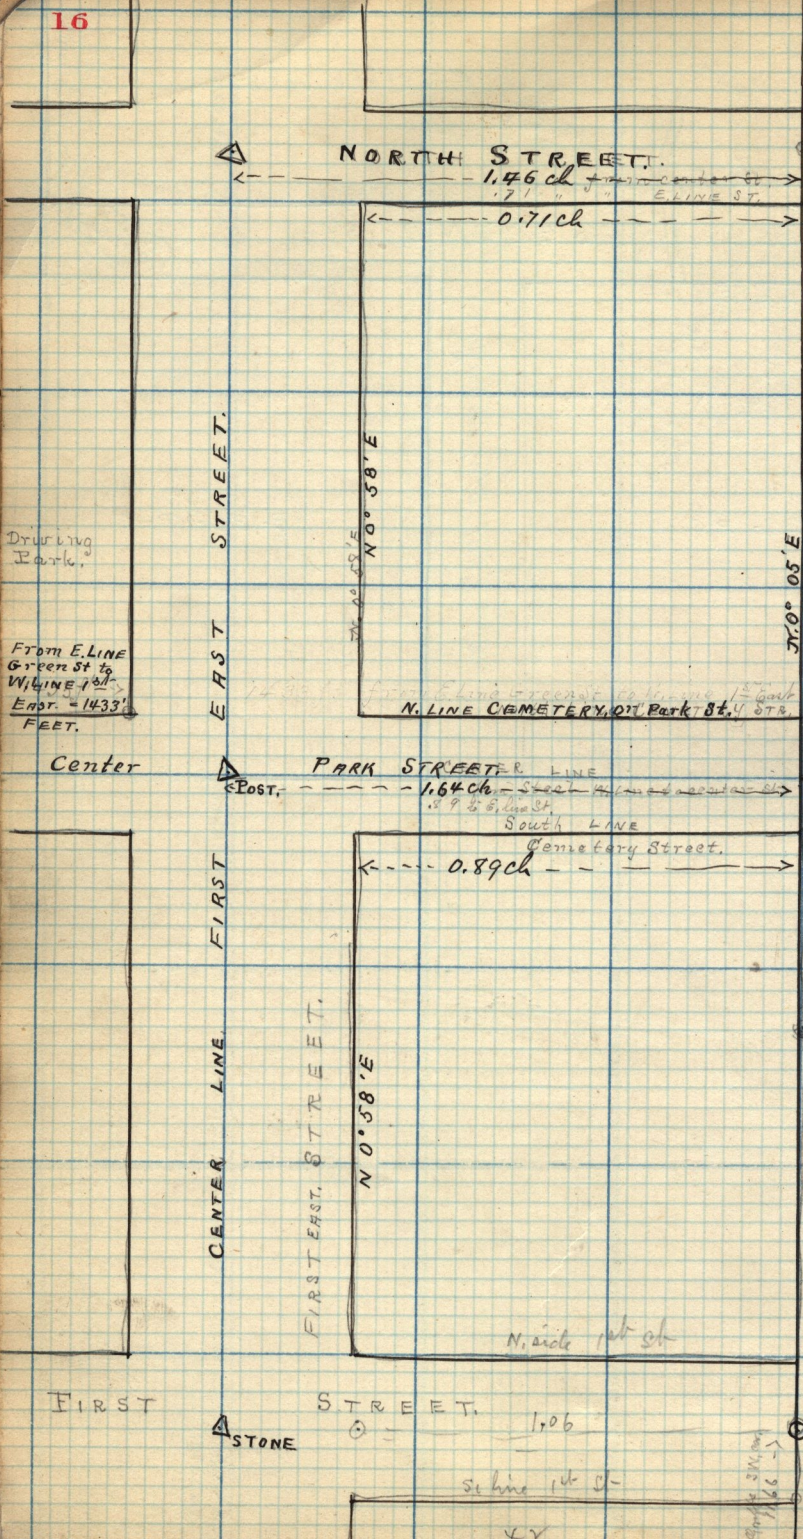 16
NORTH STREET.
1.46 ch from center St.
.71 " " E. LINE ST.
0.71 ch
EAST STREET.
N 0° 58' E
N 0° 58' E
N. 0° 05' E
Driving
Park.
From E. LINE
Green St to
W. LINE 1st
EAST. = 1433'
FEET.
from E. Line Green St to W. Line 1st East
N. LINE CEMETERY, on Park St.
Center
PARK STREET.
CENTER LINE
POST.
1.64 ch
.89 to E. line St.
South LINE
Cemetery Street.
0.89 ch
CENTER LINE FIRST
FIRST EAST. STREET.
N 0° 58' E
N. side 1st St
FIRST STREET.
1.06
STONE
S. line 1st St
.99